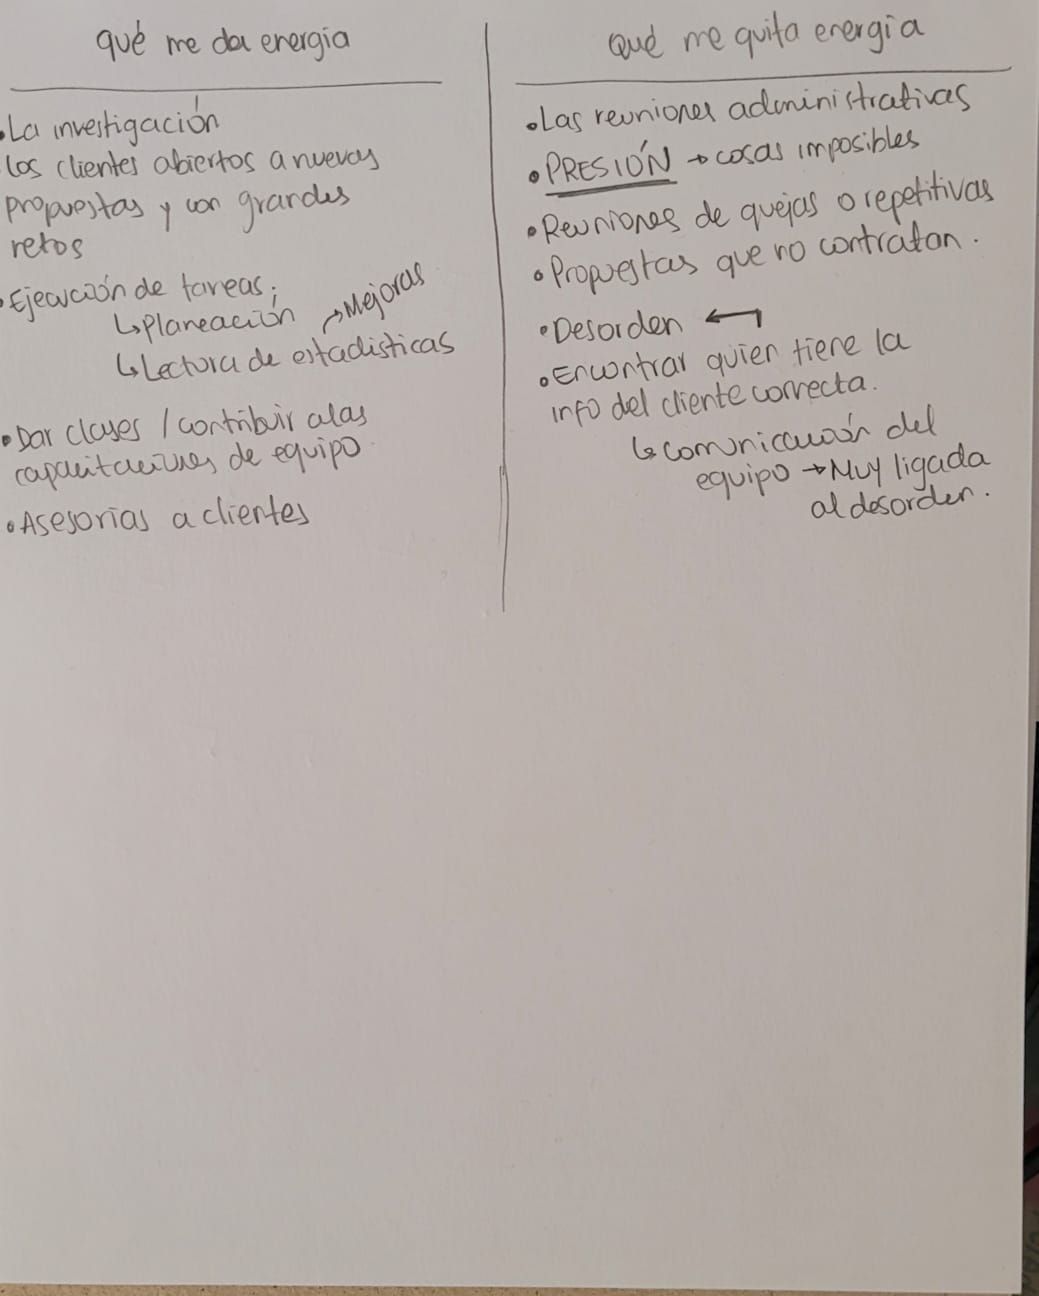 qué me da energia
•La investigación
los clientes abiertos a nuevas
propuestas y con grandes
retos
•Ejecución de tareas;
↳Planeación →Mejoras
↳Lectura de estadisticas
•Dar clases / contribuir a las
capacitaciones de equipo
•Asesorias a clientes
Qué me quita energia
•Las reuniones administrativas
•PRESIÓN → cosas imposibles
•Reuniones de quejas o repetitivas
•Propuestas que no contratan.
•Desorden ←
•Encontrar quien tiene la
info del cliente correcta.
↳comunicación del
equipo → Muy ligada
al desorden.